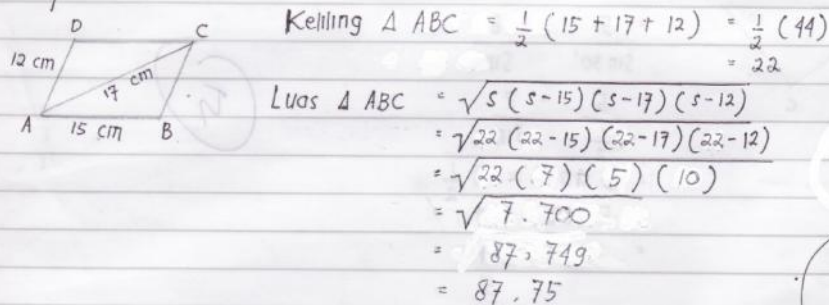 D C
12 cm
17 cm
A 15 cm B
Keliling Δ ABC = 1/2 (15 + 17 + 12) = 1/2 (44)
= 22
Luas Δ ABC = √s (s-15) (s-17) (s-12)
= √22 (22-15) (22-17) (22-12)
= √22 (7) (5) (10)
= √7.700
= 87,749
= 87,75